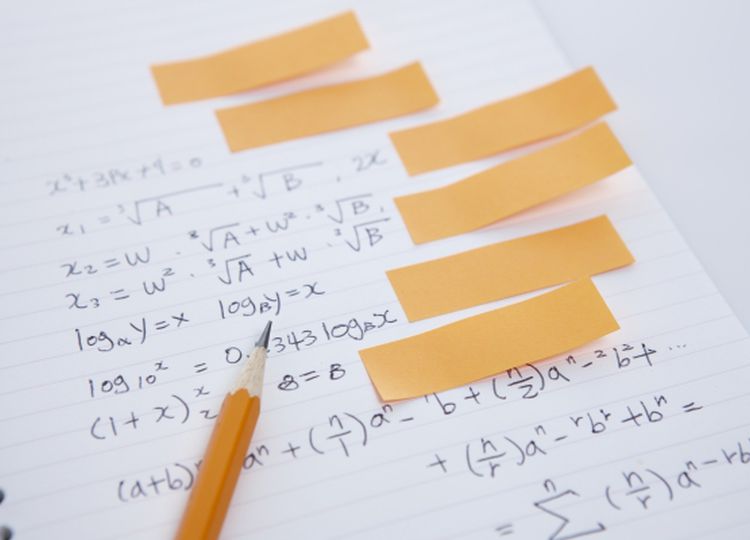 x³+3Px+q=0
x₁ = ³√A + ³√B , 2x
x₂ = W · ³√A + W² · ³√B,
x₃ = W² · ³√A + W · ³√B
logαy=x logBy=x
log10ˣ = 0. 343 logBx
(1+x) x/2 8=B
(a+b) aⁿ + (n/1)aⁿ⁻ b + (n/2)aⁿ⁻²b²+ ...
+ (n/r)aⁿ⁻ʳbʳ+bⁿ =
= ⁿ∑ (n/r)aⁿ⁻ʳb